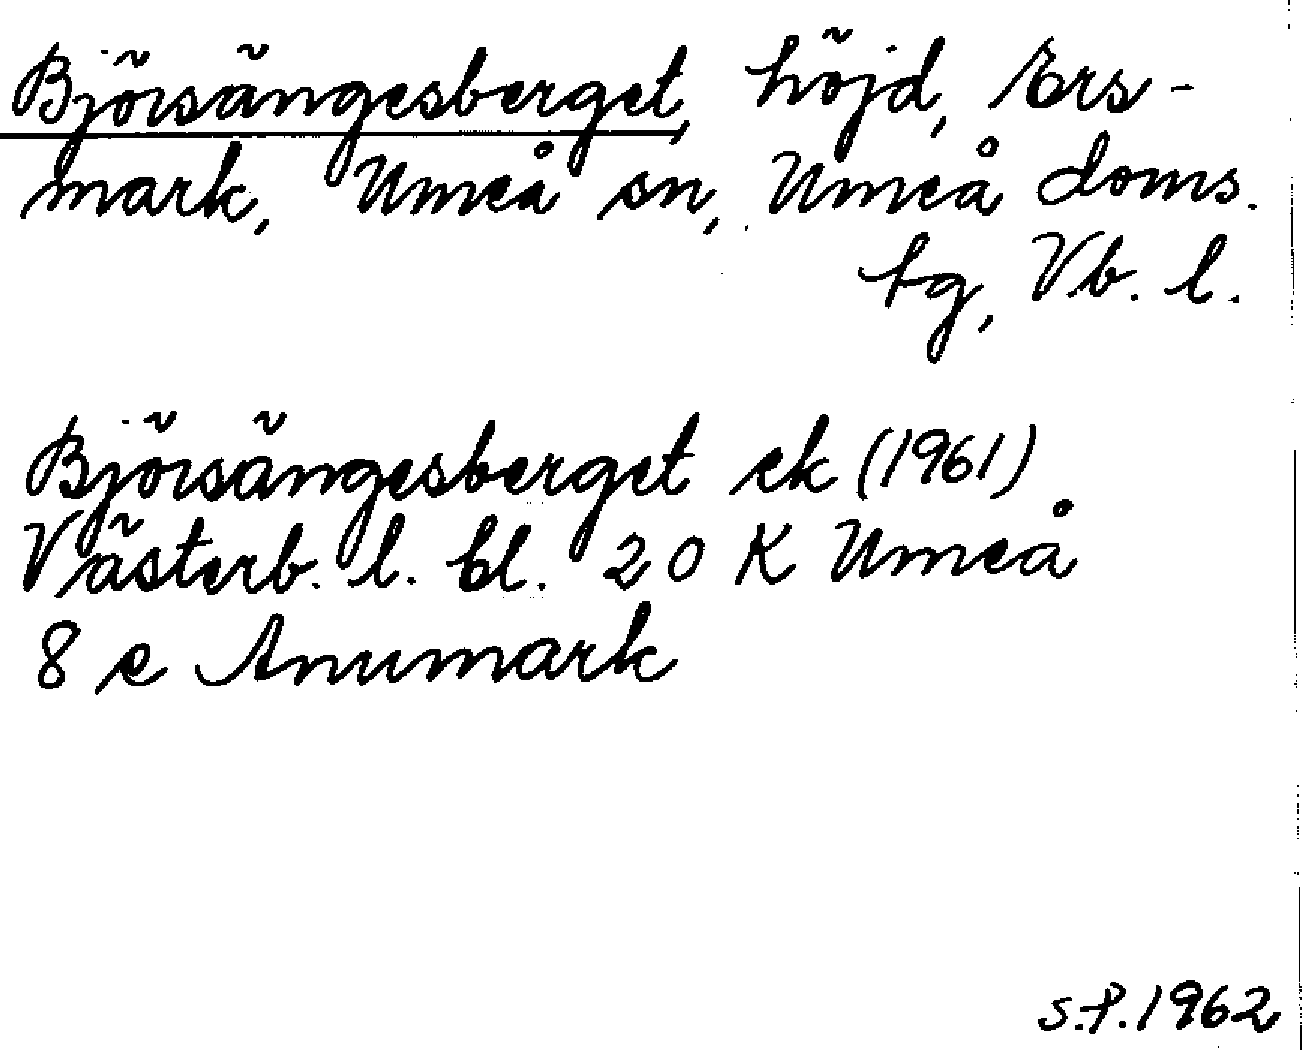 Björsängesberget, höjd, Ers-
mark, Umeå sn, Umeå doms.
tg, Vb. l.
Björsängesberget ek (1961)
Västerb. l. bl. 20 K Umeå
8 e Anumark
S.P. 1962